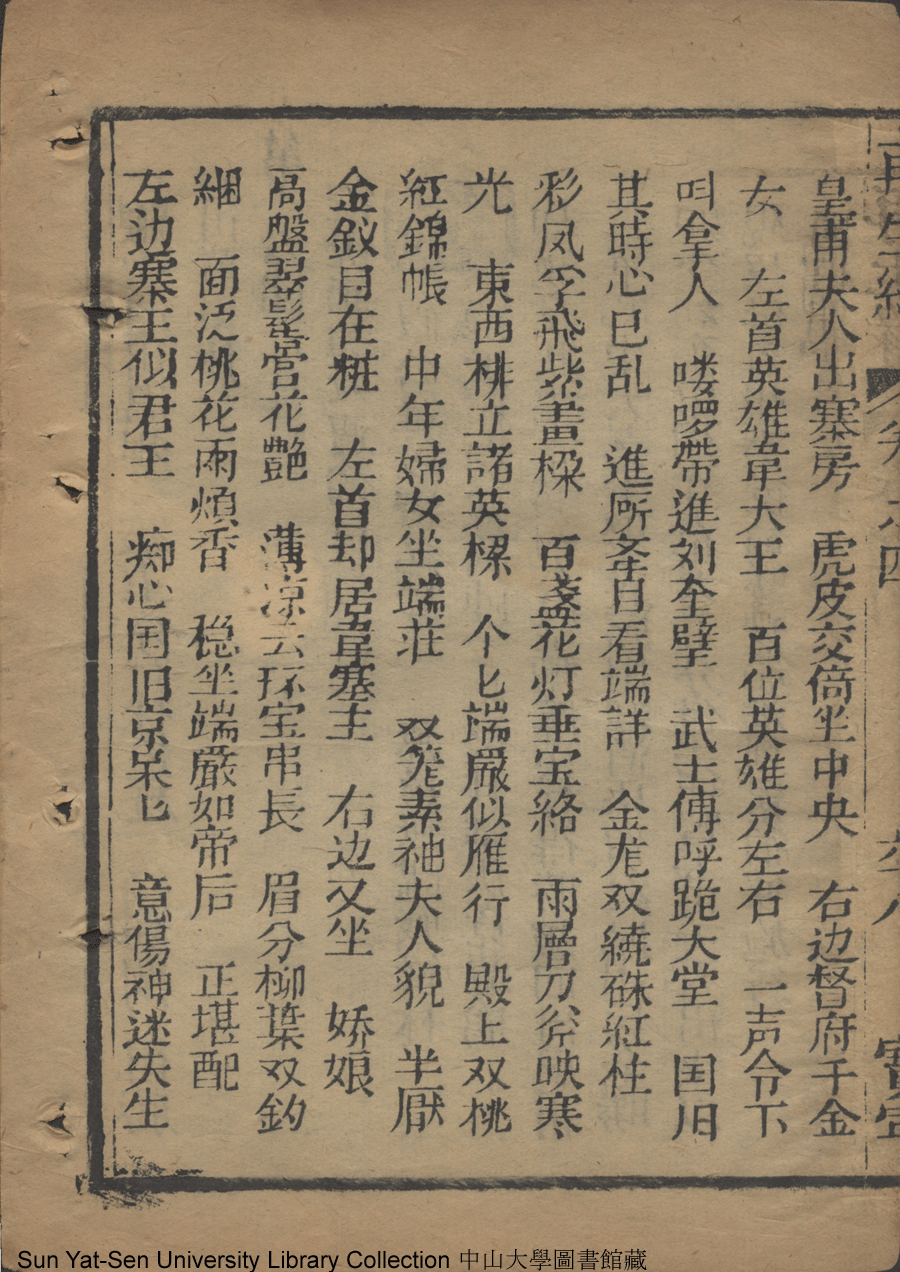 再生緣 卷之四
皇甫夫人出寨房 虎皮交倚坐中央 右边督府千金
女 左首英雄韋大王 百位英雄分左右 一声令下
叫拿人 喽啰帶進刘奎壁 武士傳呼跪大堂 国旧
其時心已乱 進所斉目看端詳 金龙双繞硃紅柱
彩凤孚飛紫畫樑 百盞花灯垂宝絡 雨層刀斧映寒
光 東西棑立諸英樑 个匕端嚴似雁行 殿上双桃
紅錦帳 中年婦女坐端荘 双笼素袖夫人貌 半厭
金釵目在粧 左首却居韋寨主 右边又坐 娇娘
高盤翠髻宮花艷 薄凉云环宝串長 眉分柳葉双釣
綑 面泛桃花兩煩香 稳坐端嚴如帝后 正堪配
左边寨王似君王 痴心国旧京呆匕 意傷神迷失生
Sun Yat-Sen University Library Collection 中山大學圖書館藏